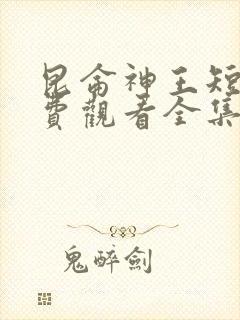 昆侖神王短
費觀看全集
鬼醉劍